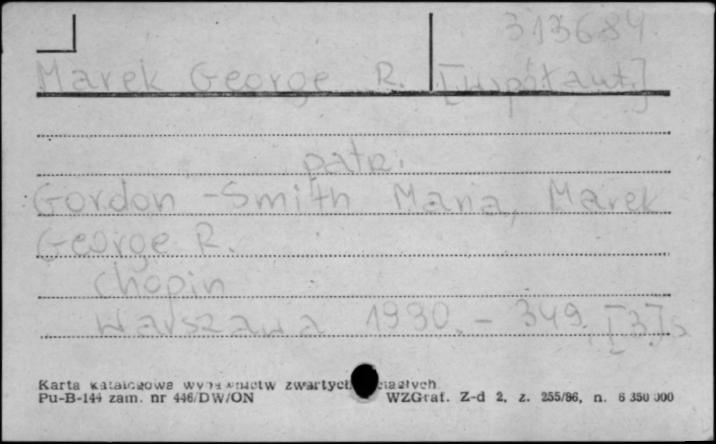 313684
Marek George R. [współaut.]
patrz
Gordon-Smith Maria, Marek
George R.
Chopin
Warszawa 1990. - 349, [3] s
Karta katalogowa wydawnictw zwartych
Pu-B-144 zam. nr 446/DW/ON WZGraf. Z-d 2, z. 255/86, n. 6 350 000